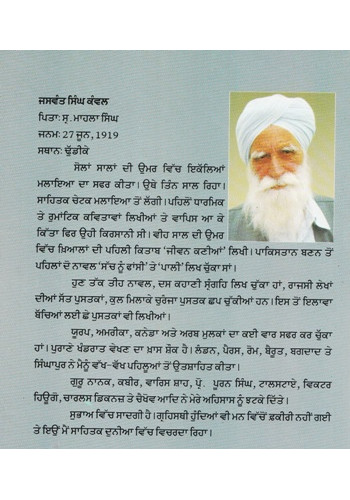 ਜਸਵੰਤ ਸਿੰਘ ਕੰਵਲ
ਪਿਤਾ: ਸ੍ਰ. ਮਾਹਲਾ ਸਿੰਘ
ਜਨਮ: 27 ਜੂਨ, 1919
ਸਥਾਨ: ਢੁੱਡੀਕੇ
ਸੋਲਾਂ ਸਾਲਾਂ ਦੀ ਉਮਰ ਵਿੱਚ ਇਕੱਲਿਆਂ
ਮਲਾਇਆ ਦਾ ਸਫਰ ਕੀਤਾ। ਉਥੇ ਤਿੰਨ ਸਾਲ ਰਿਹਾ।
ਸਾਹਿਤਕ ਚੇਟਕ ਮਲਾਇਆ ਤੋਂ ਲੱਗੀ। ਪਹਿਲੋਂ ਧਾਰਮਿਕ
ਤੇ ਰੁਮਾਂਟਿਕ ਕਵਿਤਾਵਾਂ ਲਿਖੀਆਂ ਤੇ ਵਾਪਿਸ ਆ ਕੇ
ਕਿੱਤਾ ਫਿਰ ਉਹੀ ਕਿਰਸਾਨੀ ਸੀ। ਵੀਹ ਸਾਲ ਦੀ ਉਮਰ
ਵਿੱਚ ਖ਼ਿਆਲਾਂ ਦੀ ਪਹਿਲੀ ਕਿਤਾਬ 'ਜੀਵਨ ਕਣੀਆਂ' ਲਿਖੀ। ਪਾਕਿਸਤਾਨ ਬਣਨ ਤੋਂ
ਪਹਿਲਾਂ ਦੋ ਨਾਵਲ 'ਸੱਚ ਨੂੰ ਫਾਂਸੀ' ਤੇ 'ਪਾਲੀ' ਲਿਖ ਚੁੱਕਾ ਸਾਂ।
ਹੁਣ ਤੱਕ ਤੀਹ ਨਾਵਲ, ਦਸ ਕਹਾਣੀ ਸੰਗ੍ਰਹਿ ਲਿਖ ਚੁੱਕਾ ਹਾਂ, ਰਾਜਸੀ ਲੇਖਾਂ
ਦੀਆਂ ਸੱਤ ਪੁਸਤਕਾਂ, ਕੁਲ ਮਿਲਾਕੇ ਚੁਰੰਜਾ ਪੁਸਤਕਾਂ ਛਪ ਚੁੱਕੀਆਂ ਹਨ। ਇਸ ਤੋਂ ਇਲਾਵਾ
ਬੱਚਿਆਂ ਲਈ ਛੇ ਪੁਸਤਕਾਂ ਵੀ ਲਿਖੀਆਂ।
ਯੂਰਪ, ਅਮਰੀਕਾ, ਕਨੇਡਾ ਅਤੇ ਅਰਬ ਮੁਲਕਾਂ ਦਾ ਕਈ ਵਾਰ ਸਫਰ ਕਰ ਚੁੱਕਾ
ਹਾਂ। ਪੁਰਾਣੇ ਖੰਡਰਾਤ ਵੇਖਣ ਦਾ ਖ਼ਾਸ ਸ਼ੌਕ ਹੈ। ਲੰਡਨ, ਪੈਰਸ, ਰੋਮ, ਬੈਰੂਤ, ਬਗਦਾਦ ਤੇ
ਸਿੰਘਾਪੁਰ ਨੇ ਮੈਨੂੰ ਵੱਖ-ਵੱਖ ਪਹਿਲੂਆਂ ਤੋਂ ਉਤਸ਼ਾਹਤ ਕੀਤਾ।
ਗੁਰੂ ਨਾਨਕ, ਕਬੀਰ, ਵਾਰਿਸ ਸ਼ਾਹ, ਪ੍ਰੋ. ਪੂਰਨ ਸਿੰਘ, ਟਾਲਸਟਾਏ, ਵਿਕਟਰ
ਹਿਊਗੋ, ਚਾਰਲਸ ਡਿਕਨਜ਼ ਤੇ ਚੈਖੋਵ ਆਦਿ ਨੇ ਮੇਰੇ ਅਹਿਸਾਸ ਨੂੰ ਝਟਕੇ ਦਿੱਤੇ।
ਸੁਭਾਅ ਵਿੱਚ ਸਾਦਗੀ ਹੈ। ਗ੍ਰਹਿਸਥੀ ਹੁੰਦਿਆਂ ਵੀ ਮਨ ਵਿੱਚੋਂ ਫ਼ਕੀਰੀ ਨਹੀਂ ਗਈ
ਤੇ ਇਉਂ ਮੈਂ ਸਾਹਿਤਕ ਦੁਨੀਆ ਵਿੱਚ ਵਿਚਰਦਾ ਰਿਹਾ।